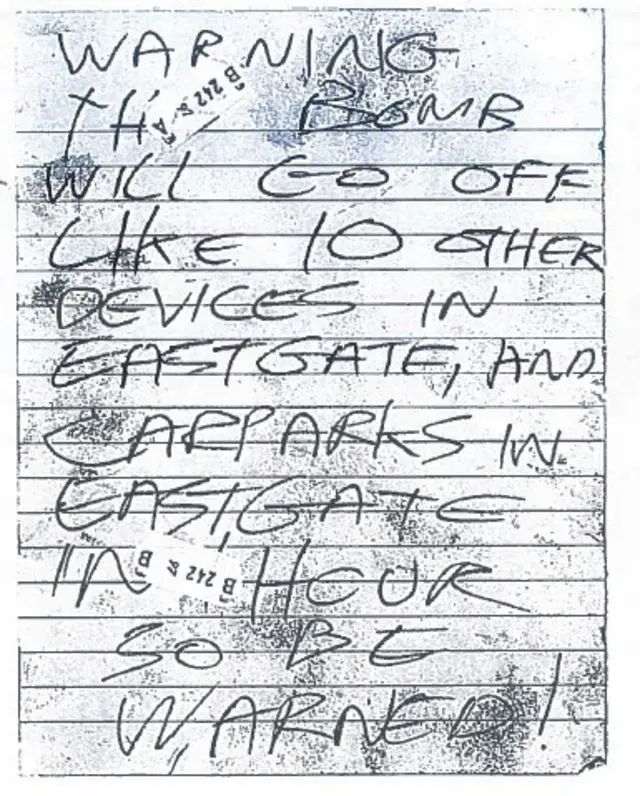 WARNING
B 242 & A
TH BOMB
WILL GO OFF
LIKE 10 OTHER
DEVICES IN
EASTGATE, AND
CARPARKS IN
EASTGATE
IN HOUR
B 242 & B
SO BE
WARNED!